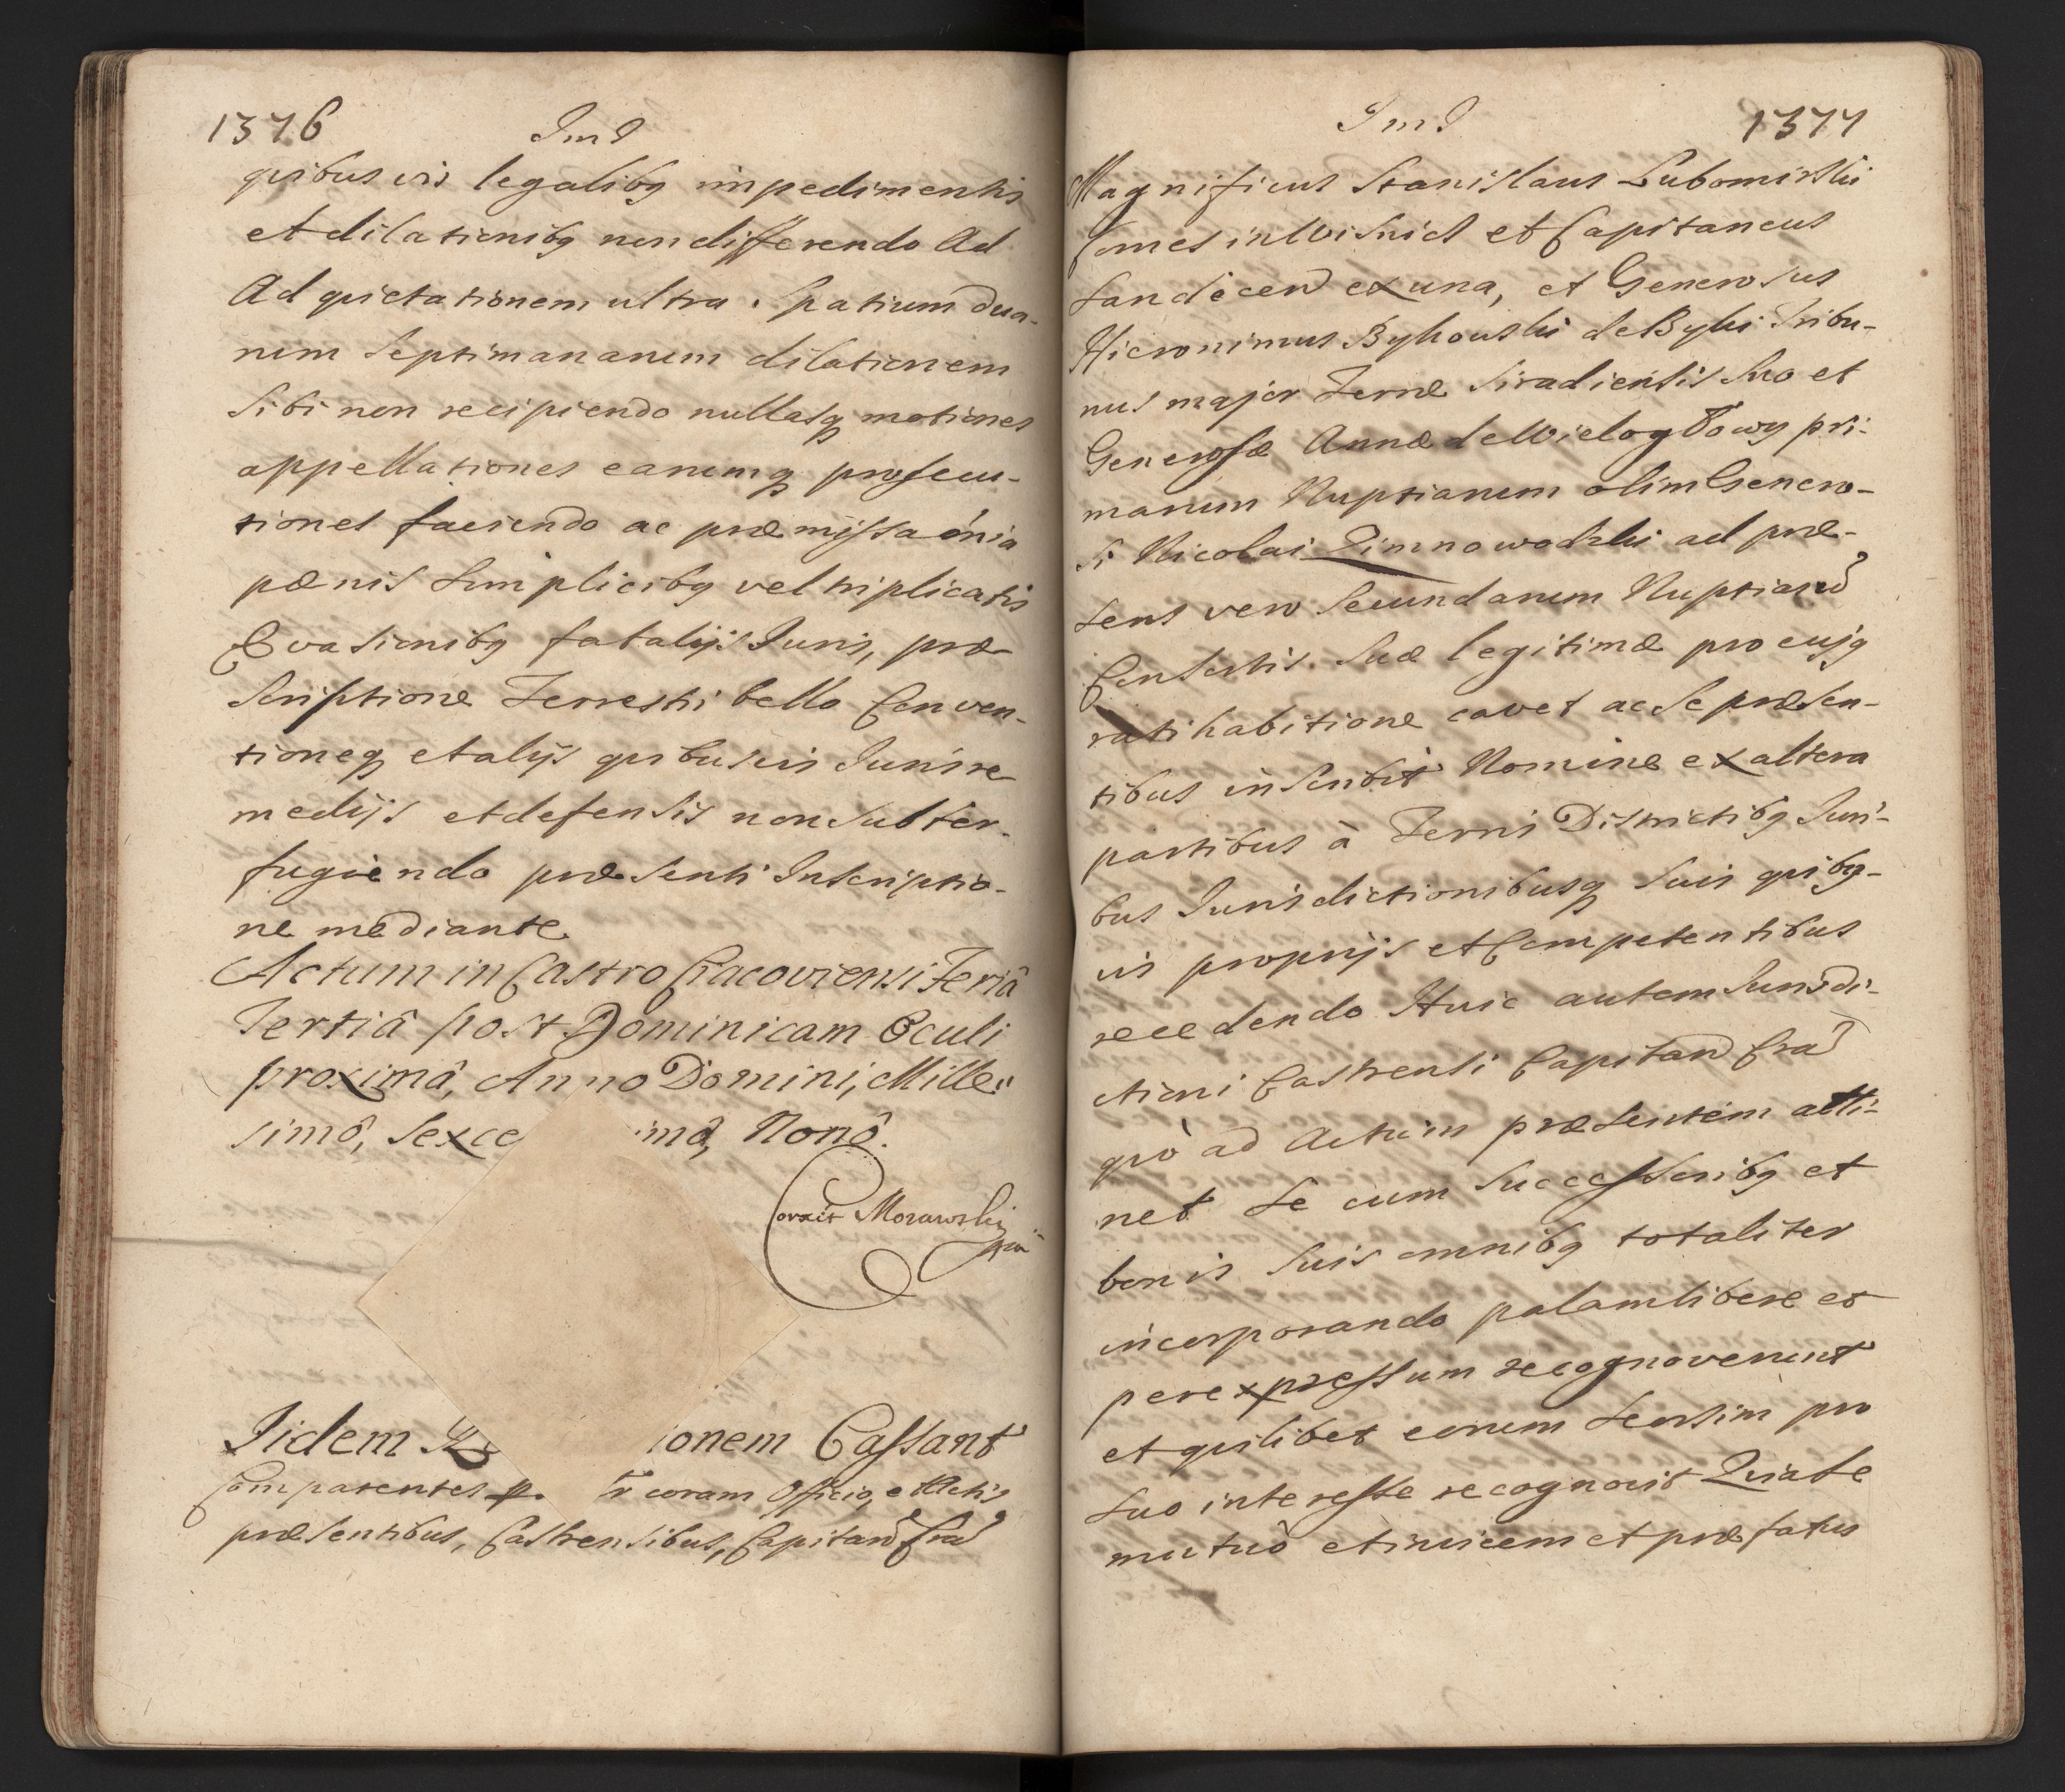 1376
quibusvis legalibq impedimentis
et dilationibq non differendo Ad
Ad quietationem ultra Spatium dua-
rum Septimanarum dilationem
Sibi non recipiendo nullasq motiones
appellationes earumq prosecu-
tiones faciendo ac præmissa oñia
pænis Simplicibq vel triplicatis
Evasionibq fatalijs Juris, præ
Scriptione Terrestri bello Conven-
tioneq et alijs quibusvis Juris re
medijs et defensis non Subter-
fugiendo præsenti Inscriptio-
ne mediante
Actum in Castro Cracoviensi Feriâ
Tertiâ post Dominicam Oculi
proximâ, Anno Domini, Mille-
simô, Sexce imô, Nonô.
Correxit Morawski
Iidem ionem Cassant
Comparentes coram Officio, et Actis
præsentibus, Castrensibus, Capitan Cra
1377
Magnificus Stanislaus Lubomirski
Comes in Wisnicz et Capitaneus
Sandecen ex una, et Generosus
Hieronimus Bykowski de Byki Tribu-
nus major Terræ Siradiensis Suo et
Generosæ Annæ de Wielogłowy pri-
marum Nuptiarum olim Genero-
si Nicolai Zimnowodzki ad præ-
sens vero Secundarum Nuptiarũ
Consortis Suæ legitimæ pro cujq
ratihabitione cavet ac Se præsen-
tibus inscribit Nomine ex altera
partibus à Terris Districtibq Juri-
bus Jurisdictionibusq Suis quibq-
vis proprijs et Competentibus
recedendo Huic autem Jurisdi-
ctioni Castrensi Capitan Cra
quò ad Actum præsentem atti-
net Se cum Successoribq et
bonis Suis omnibq totaliter
incorporando palam libere et
per expressum recognoverunt
et quilibet eorum Seorsim pro
Suo interesse recognovit Quia Se
mutuò et invicem et præfatus